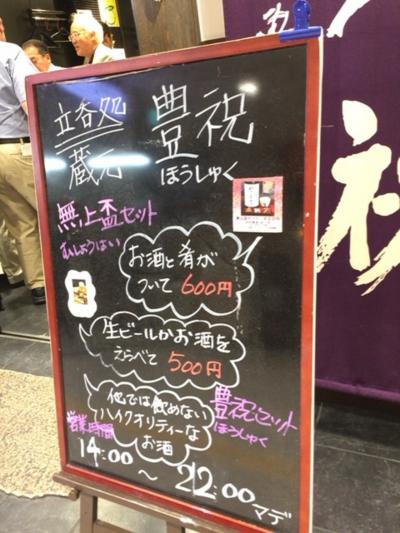 立呑処
蔵元
豊祝
ほうしゅく
無上盃セット
むじょうはい
お酒と肴が
ついて 600円
生ビールかお酒を
えらべて 500円
豊祝セット
ほうしゅく
他では飲めない
ハイクオリティーな
お酒
営業時間
14:00～22:00マデ
祝